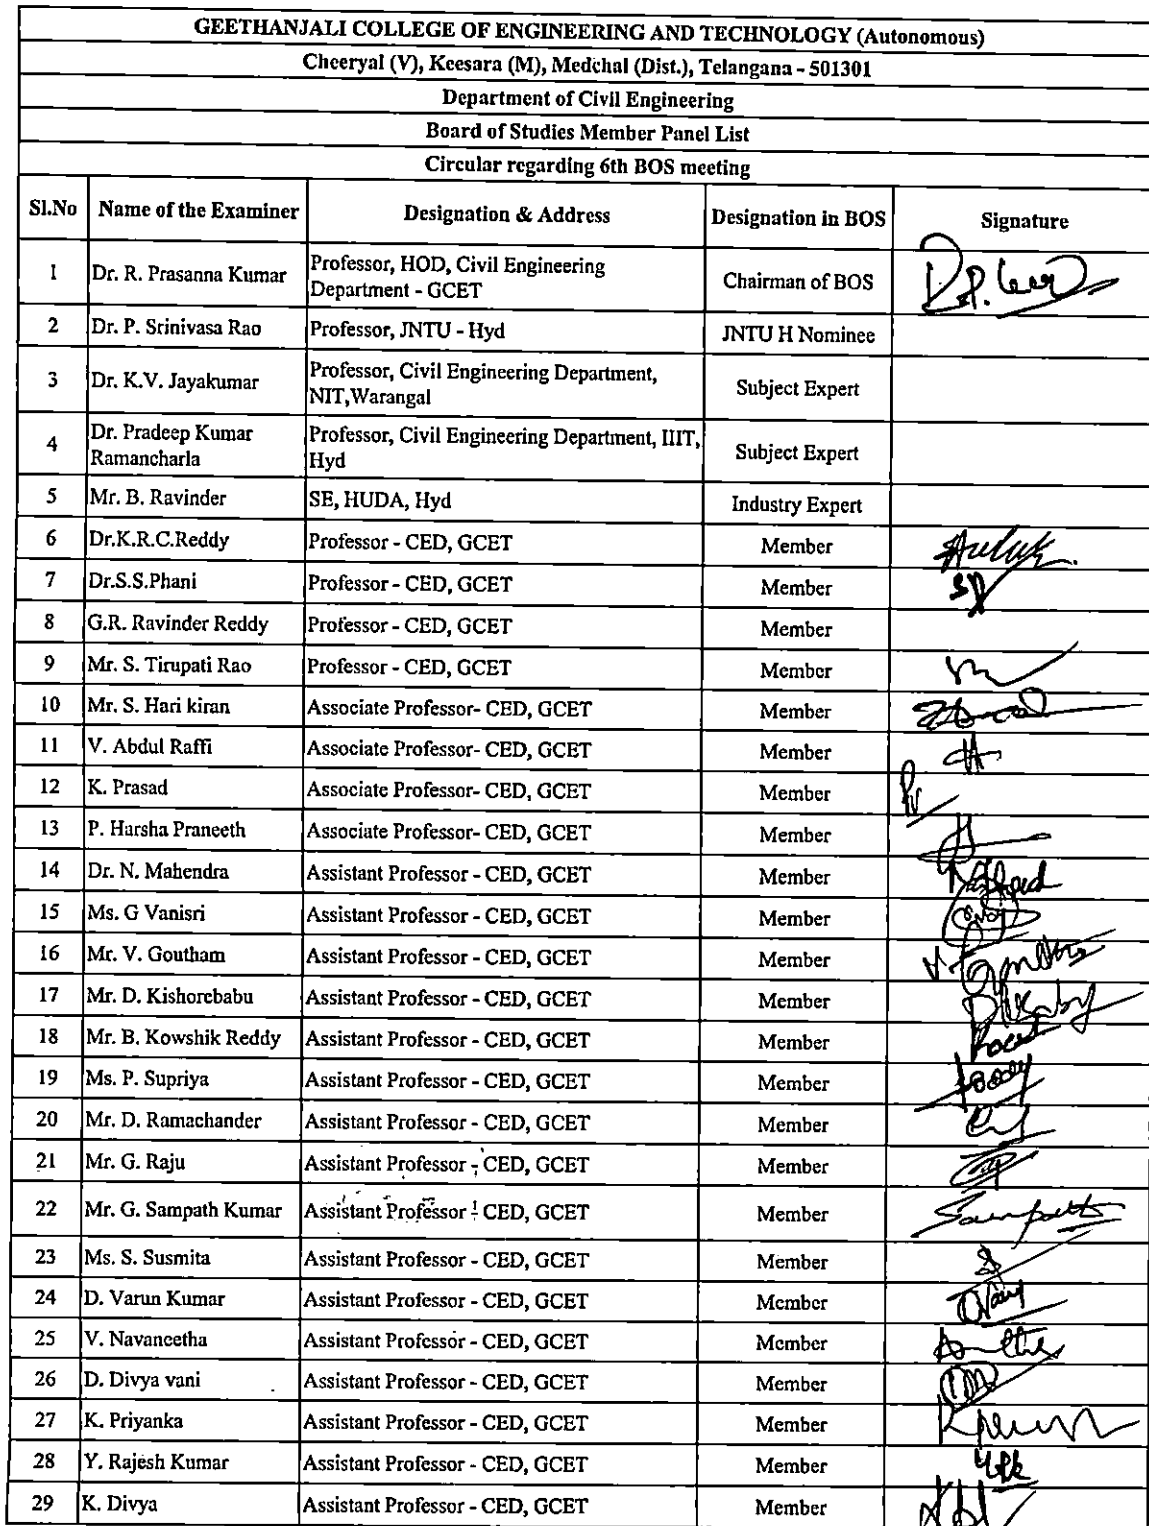 GEETHANJALI COLLEGE OF ENGINEERING AND TECHNOLOGY (Autonomous)
Cheeryal (V), Keesara (M), Medchal (Dist.), Telangana - 501301
Department of Civil Engineering
Board of Studies Member Panel List
Circular regarding 6th BOS meeting
Sl.No Name of the Examiner Designation & Address Designation in BOS Signature
1 Dr. R. Prasanna Kumar Professor, HOD, Civil Engineering Department - GCET Chairman of BOS
2 Dr. P. Srinivasa Rao Professor, JNTU - Hyd JNTU H Nominee
3 Dr. K.V. Jayakumar Professor, Civil Engineering Department, NIT,Warangal Subject Expert
4 Dr. Pradeep Kumar Ramancharla Professor, Civil Engineering Department, IIIT, Hyd Subject Expert
5 Mr. B. Ravinder SE, HUDA, Hyd Industry Expert
6 Dr.K.R.C.Reddy Professor - CED, GCET Member
7 Dr.S.S.Phani Professor - CED, GCET Member
8 G.R. Ravinder Reddy Professor - CED, GCET Member
9 Mr. S. Tirupati Rao Professor - CED, GCET Member
10 Mr. S. Hari kiran Associate Professor- CED, GCET Member
11 V. Abdul Raffi Associate Professor- CED, GCET Member
12 K. Prasad Associate Professor- CED, GCET Member
13 P. Harsha Praneeth Associate Professor- CED, GCET Member
14 Dr. N. Mahendra Assistant Professor - CED, GCET Member
15 Ms. G Vanisri Assistant Professor - CED, GCET Member
16 Mr. V. Goutham Assistant Professor - CED, GCET Member
17 Mr. D. Kishorebabu Assistant Professor - CED, GCET Member
18 Mr. B. Kowshik Reddy Assistant Professor - CED, GCET Member
19 Ms. P. Supriya Assistant Professor - CED, GCET Member
20 Mr. D. Ramachander Assistant Professor - CED, GCET Member
21 Mr. G. Raju Assistant Professor - CED, GCET Member
22 Mr. G. Sampath Kumar Assistant Professor - CED, GCET Member Sampath
23 Ms. S. Susmita Assistant Professor - CED, GCET Member
24 D. Varun Kumar Assistant Professor - CED, GCET Member
25 V. Navaneetha Assistant Professor - CED, GCET Member
26 D. Divya vani Assistant Professor - CED, GCET Member
27 K. Priyanka Assistant Professor - CED, GCET Member
28 Y. Rajesh Kumar Assistant Professor - CED, GCET Member
29 K. Divya Assistant Professor - CED, GCET Member